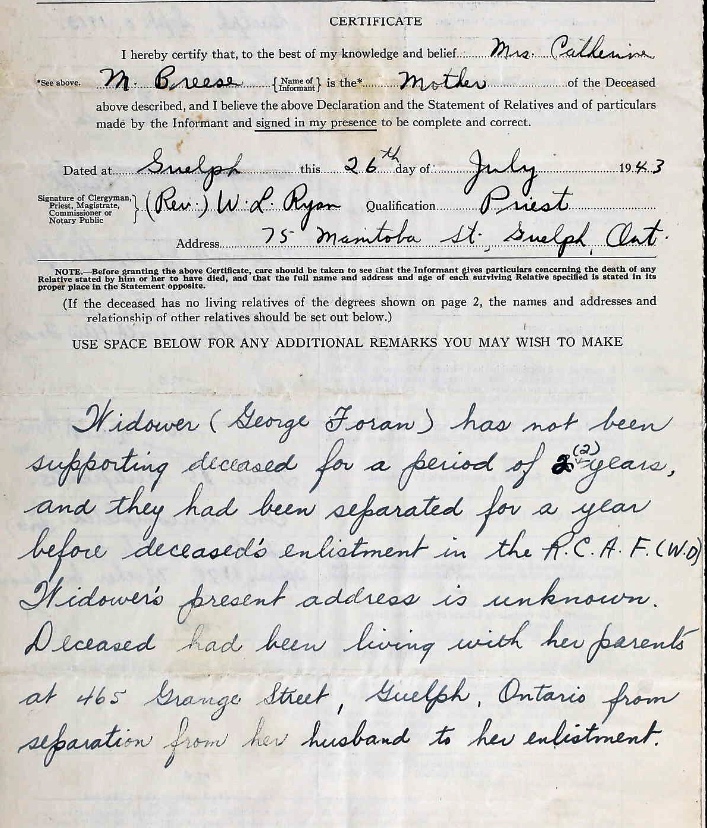 CERTIFICATE
I hereby certify that, to the best of my knowledge and belief Mrs. Catherine
*See above. M. Breese {Name of Informant} is the* Mother of the Deceased
above described, and I believe the above Declaration and the Statement of Relatives and of particulars
made by the Informant and signed in my presence to be complete and correct.
Dated at Guelph this 26th day of July 1943
Signature of Clergyman, Priest, Magistrate, Commissioner or Notary Public } (Rev.) W. L. Ryan Qualification Priest
Address 75 Manitoba St., Guelph, Ont.
NOTE.—Before granting the above Certificate, care should be taken to see that the Informant gives particulars concerning the death of any
Relative stated by him or her to have died, and that the full name and address and age of each surviving Relative specified is stated in its
proper place in the Statement opposite.
(If the deceased has no living relatives of the degrees shown on page 2, the names and addresses and
relationship of other relatives should be set out below.)
USE SPACE BELOW FOR ANY ADDITIONAL REMARKS YOU MAY WISH TO MAKE
Widower (George Foran) has not been
supporting deceased for a period of 2 (2) years,
and they had been separated for a year
before deceased's enlistment in the R.C.A.F. (W.D)
Widower's present address is unknown.
Deceased had been living with her parents
at 465 Grange Street, Guelph, Ontario from
separation from her husband to her enlistment.